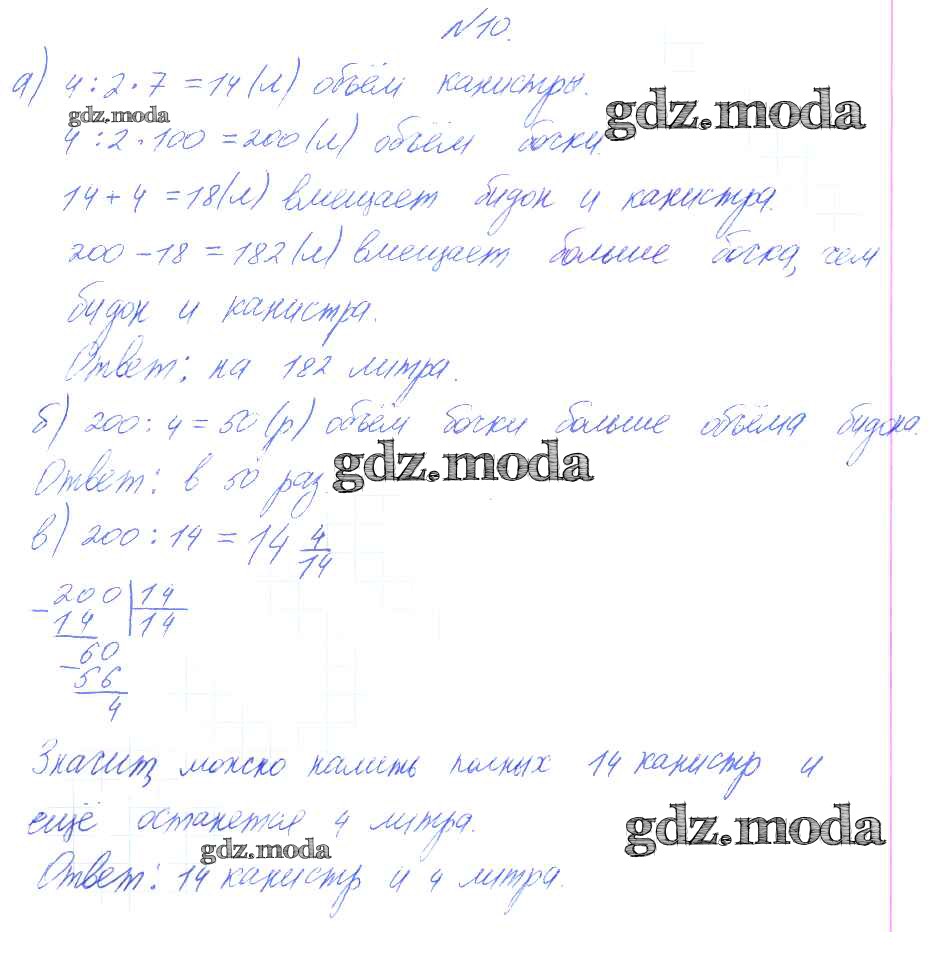 №10.
а) 4 : 2 • 7 = 14 (л) объём канистры.
gdz.moda
gdz.moda
4 : 2 • 100 = 200 (л) объём бочки.
14 + 4 = 18 (л) вмещает бидон и канистра.
200 - 18 = 182 (л) вмещает больше бочка, чем
бидон и канистра.
Ответ: на 182 литра.
б) 200 : 4 = 50 (р) объём бочки больше объёма бидона.
gdz.moda
Ответ: в 50 раз.
в) 200 : 14 = 14 4/14
- 200 | 14
14 | 14
- 60
56
4
Значит, можно налить полных 14 канистр и
ещё останется 4 литра.
gdz.moda
gdz.moda
Ответ: 14 канистр и 4 литра.